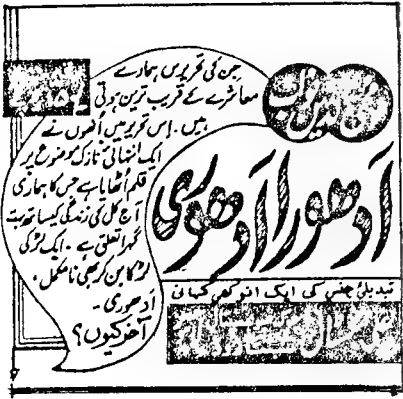 جن کی تحریریں ہمارے
معاشرے کے قریب ترین ہوتی
ہیں۔ اِس تحریر میں اُنھوں نے
ایک انتہائی نازک موضوع پر
قلم اُٹھایا ہے جس کا ہماری
آج کل کی زندگی کیساتھ بہت
گہرا تعلق ہے۔ ایک لڑکی
لڑکا بن کر بھی نامکمل،
اَدھوری۔
آخر کیوں؟
اَدھورا اَدھوری
تبدیلیٔ جنس کی ایک انوکھی کہانی